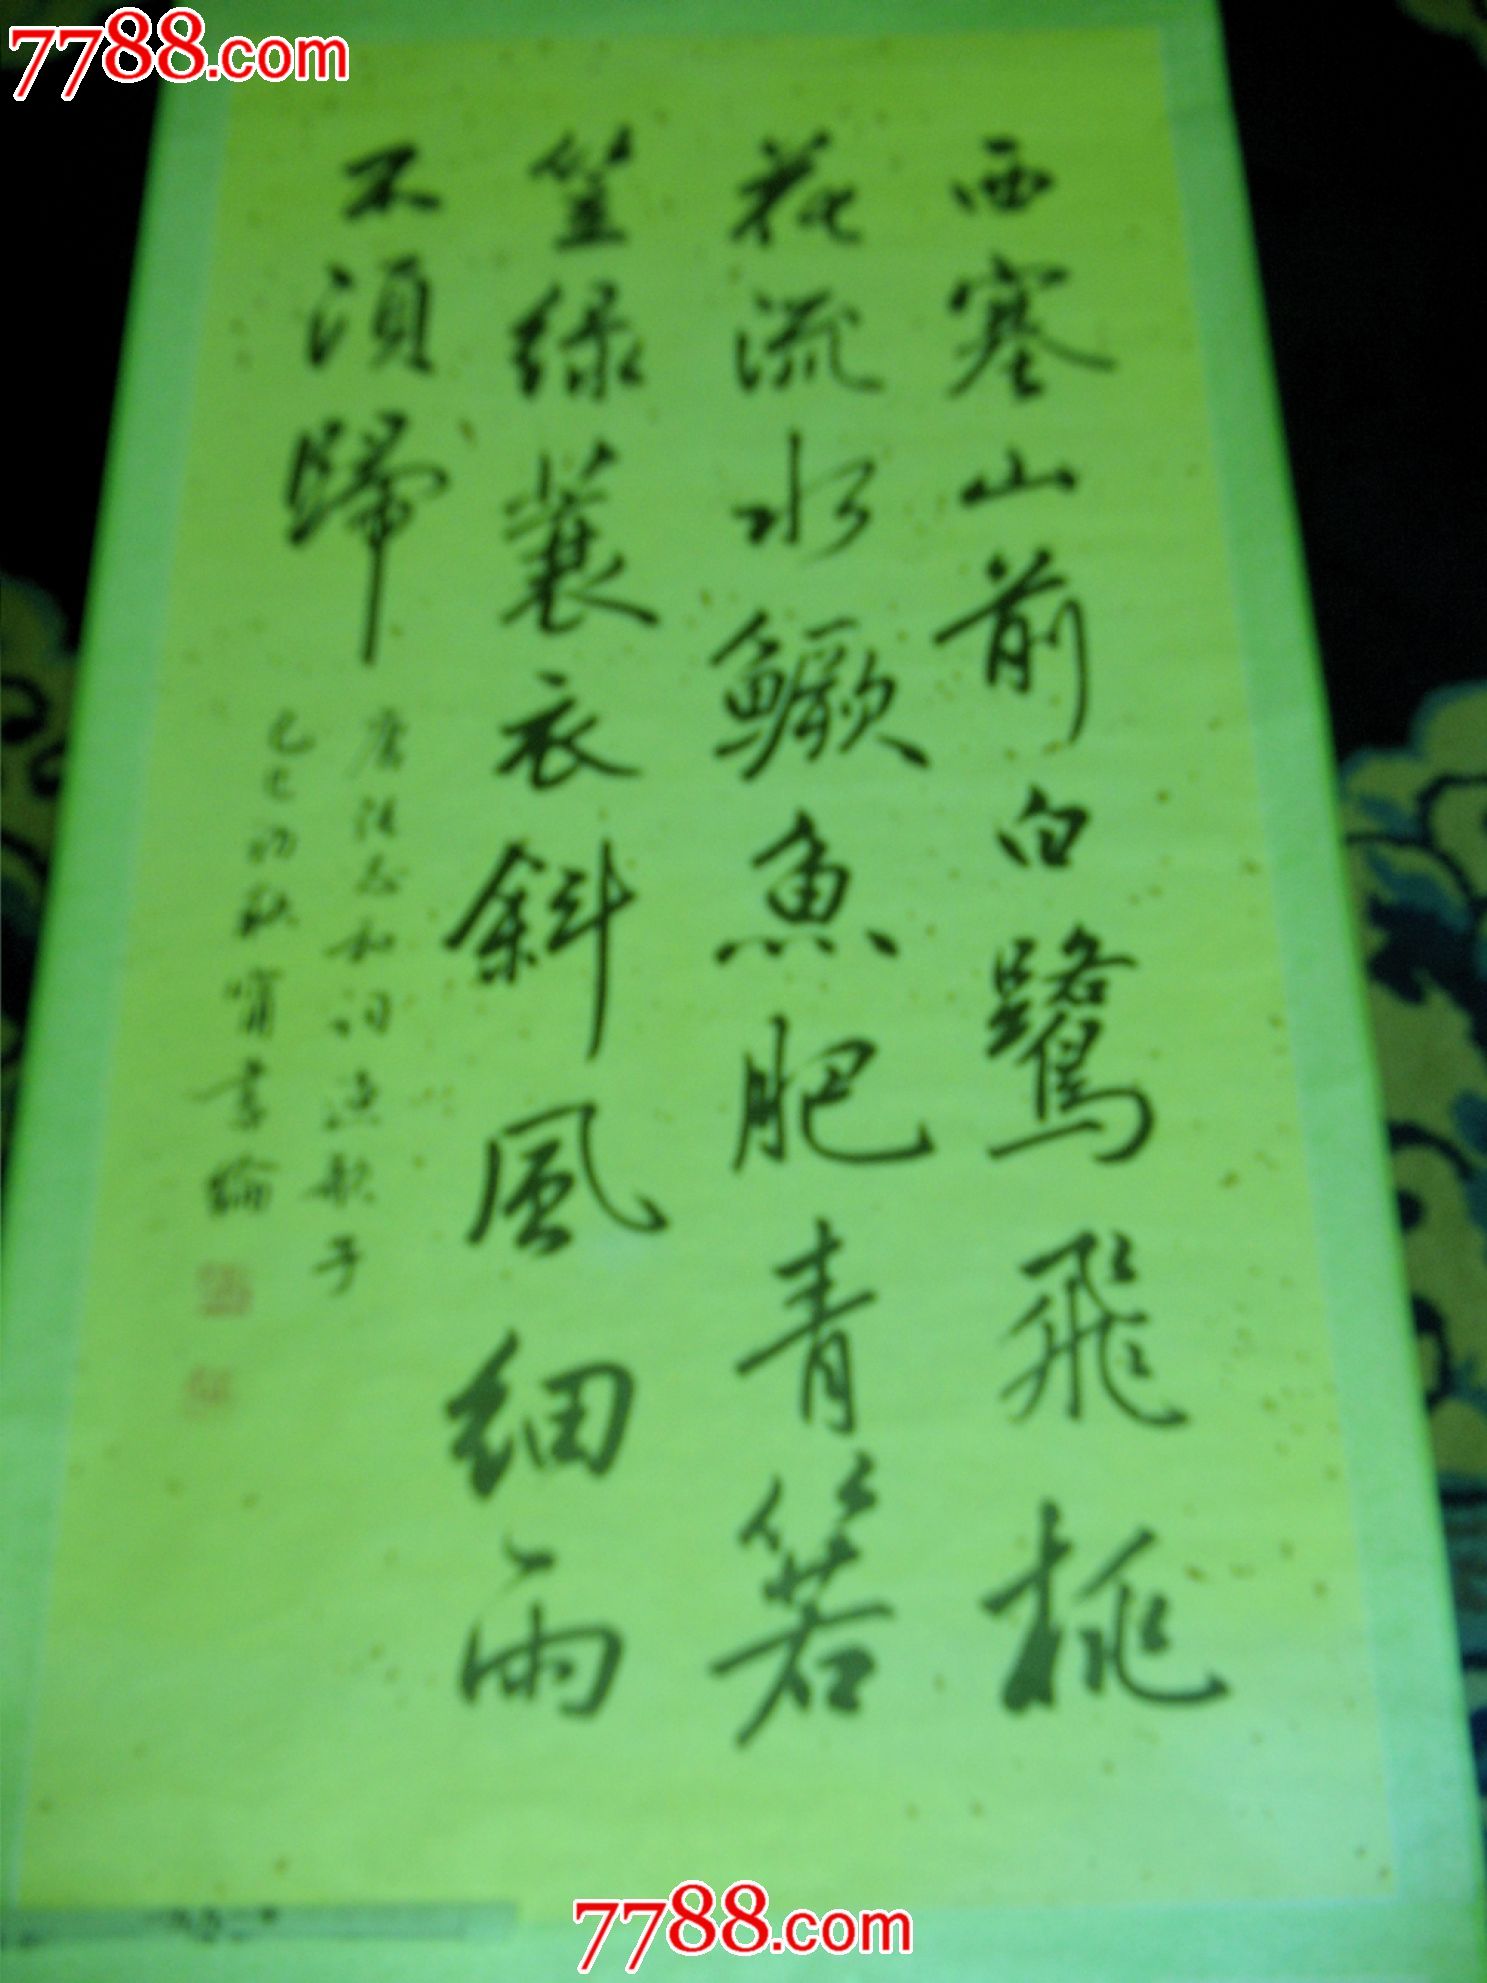 7788.com
西塞山前白鹭飛桃
花流水鳜魚肥青箬
笠绿蓑衣斜風细雨
不須歸
唐张志和词渔歌子
己巳初秋
7788.com